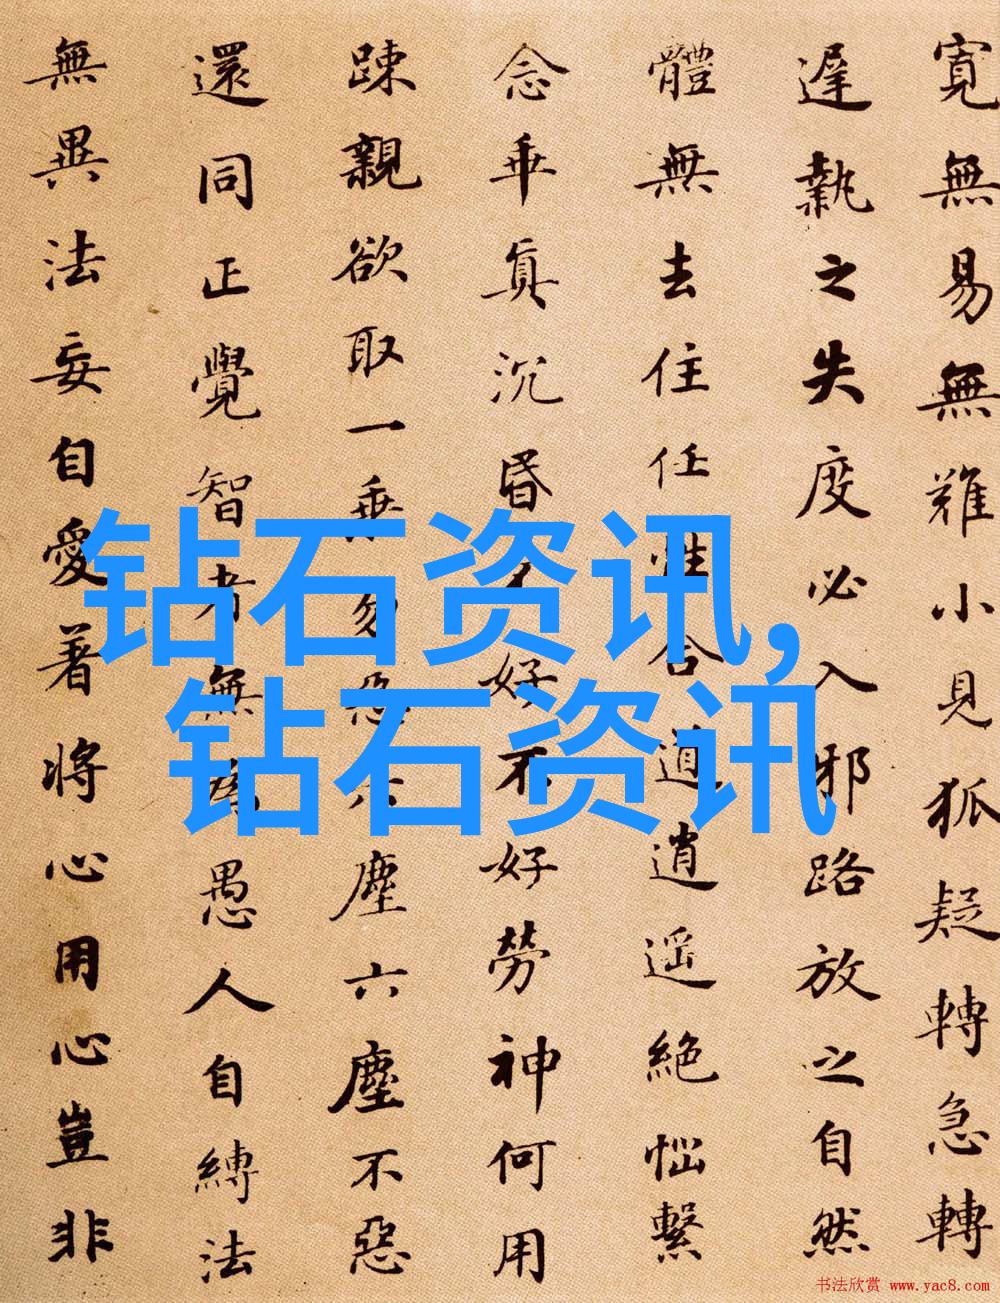 寬無易無難小見狐疑轉急轉
遲執之失度必入邪路放之自然
體無去住任性合道逍遥絶惱繫
念乖真沉昏不好不好勞神何用
踈親欲取一乘勿惡六塵六塵不惡
還同正覺智者無為愚人自縛法
無異法妄自愛著將心用心豈非
钻石资讯,
钻石资讯
书法欣赏 www.yac8.com